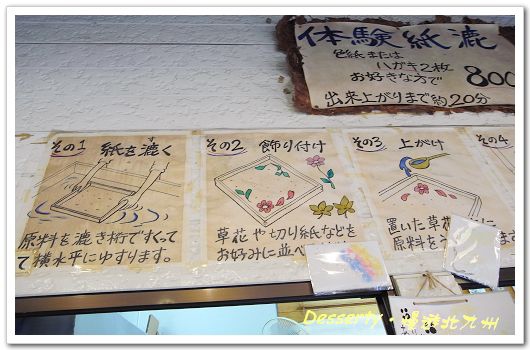 体験紙漉
色紙または
ハガキ2枚
お好きな方で
800
出来上がりまで約20分
その1 紙を漉く
す
原料を漉き桁ですくって
て横水平にゆすります。
その2 飾り付け
草花や切り紙などを
お好みに並べ
その3 上がけ
置いた草花に
原料を
その4
Desserty・漫遊北九州